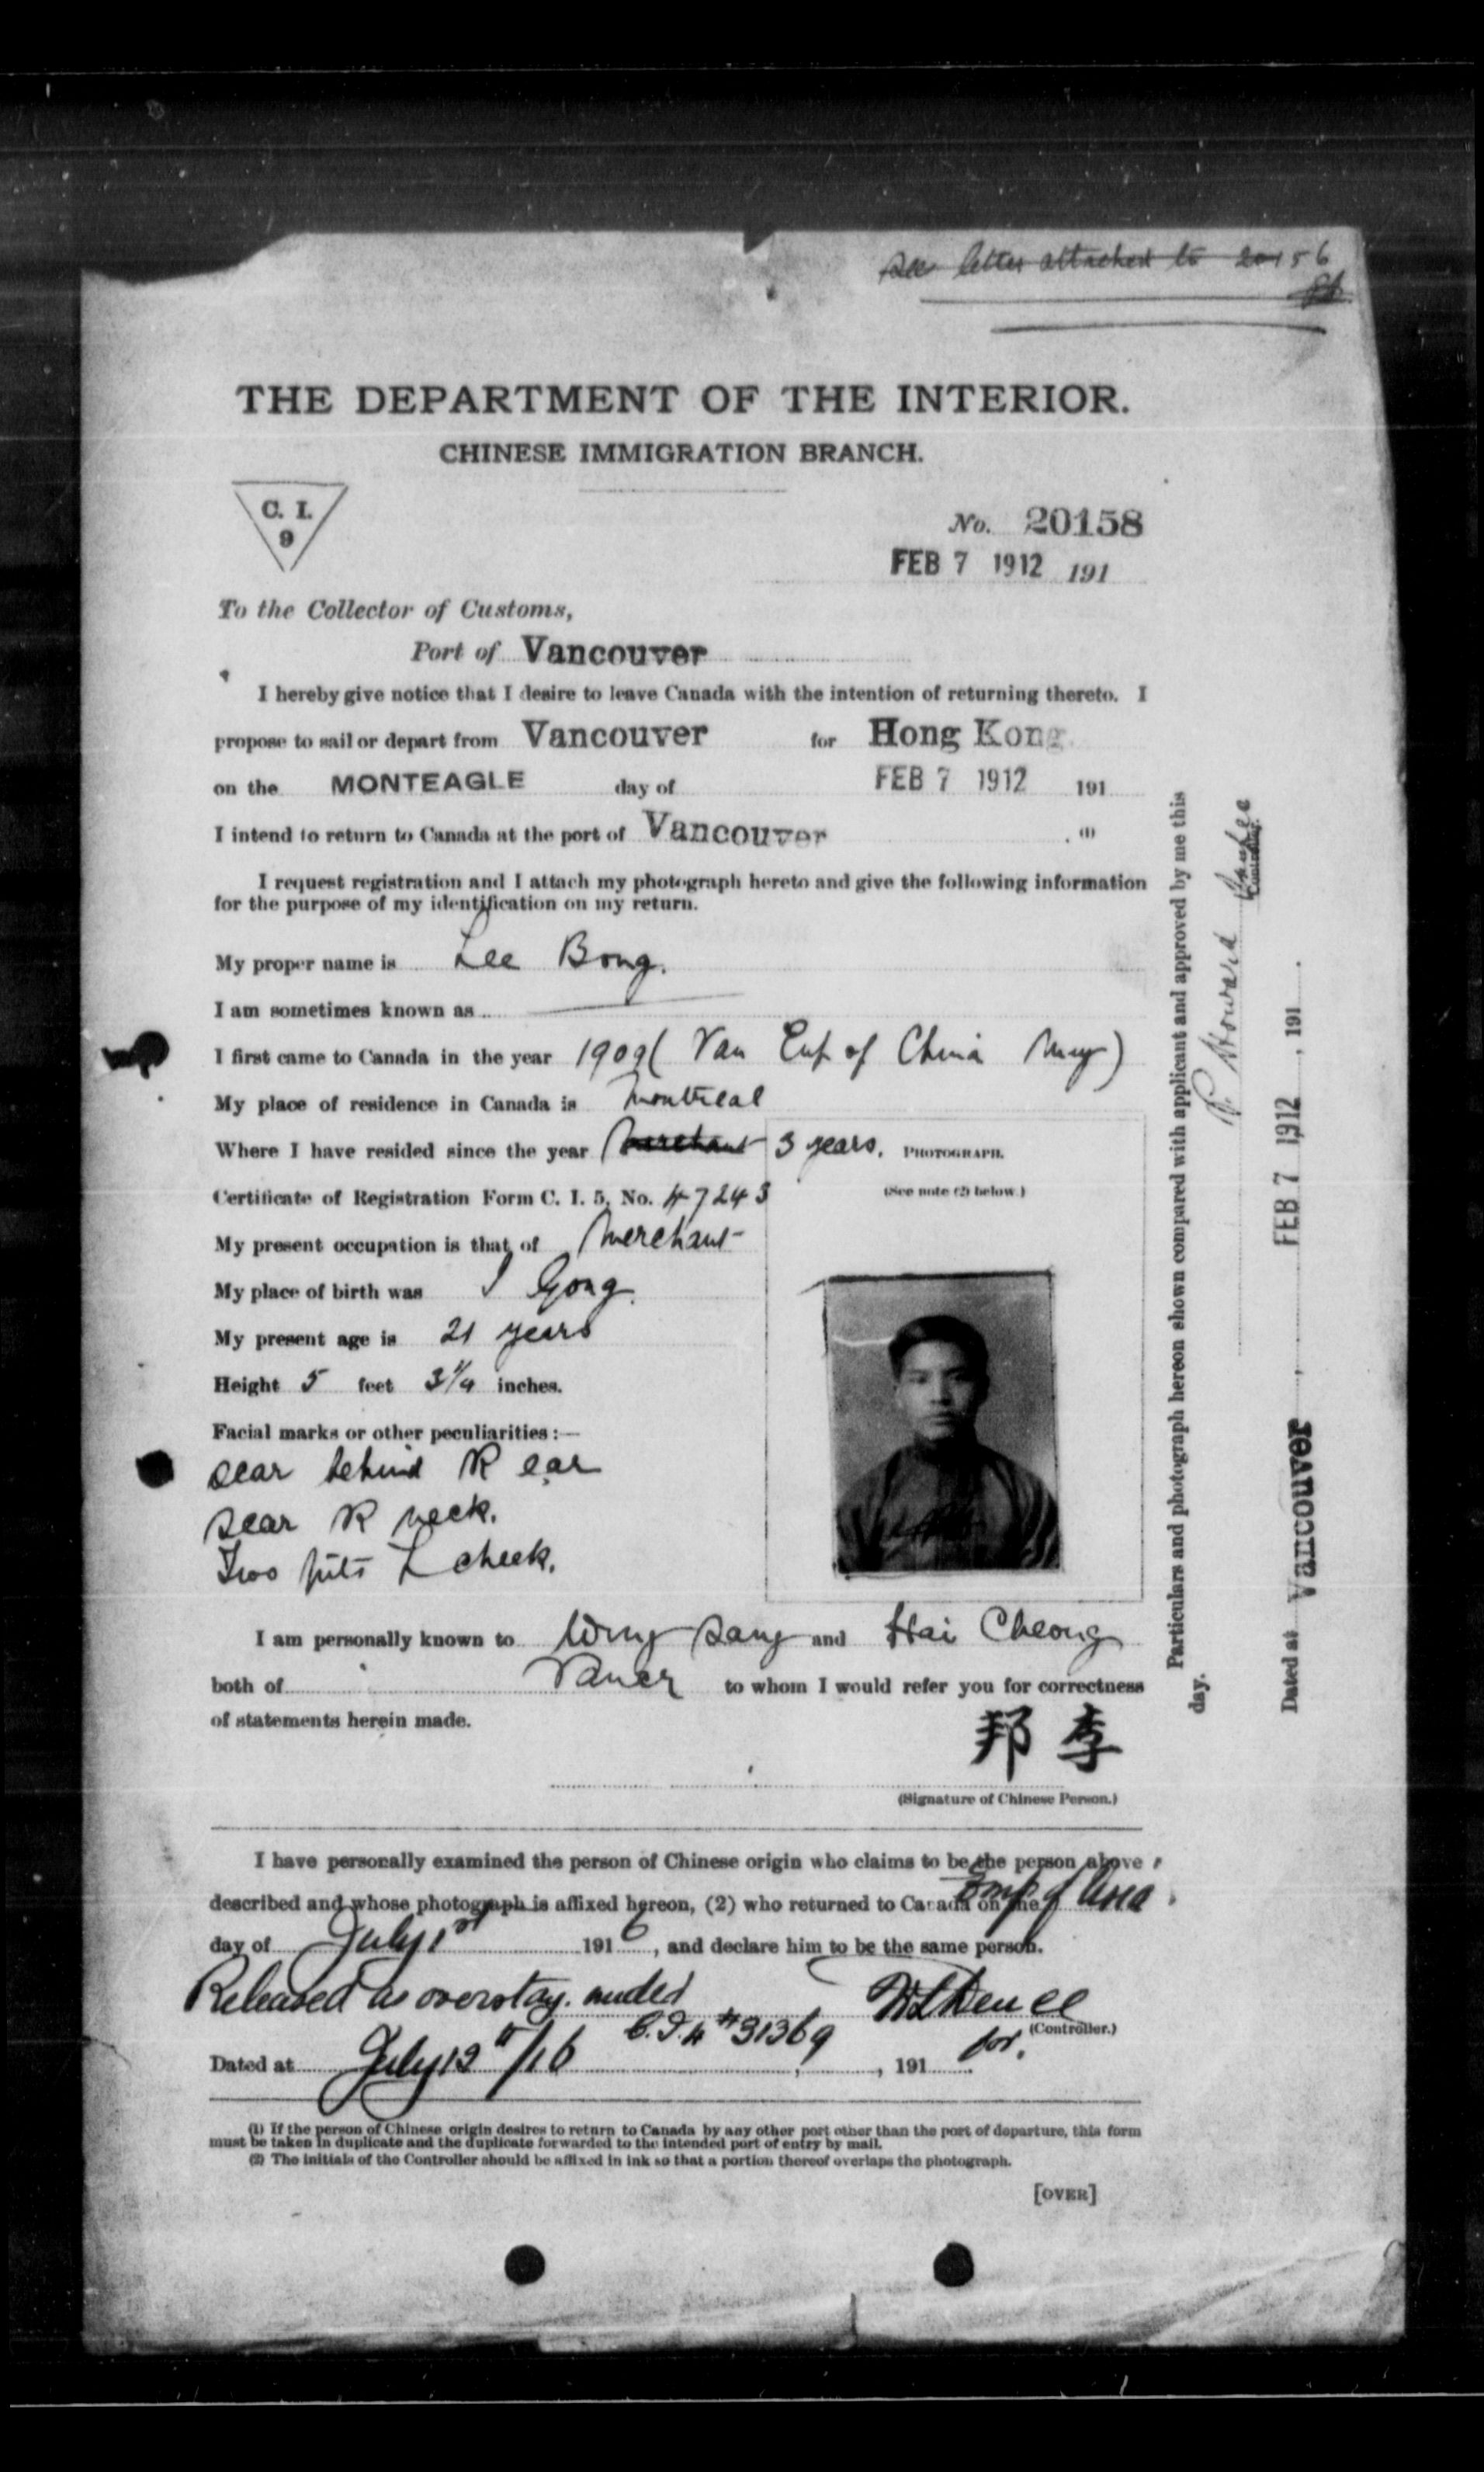 see letter attached to 20156
THE DEPARTMENT OF THE INTERIOR.
CHINESE IMMIGRATION BRANCH.
C. I.
9
No. 20158
FEB 7 1912 191
To the Collector of Customs,
Port of Vancouver
I hereby give notice that I desire to leave Canada with the intention of returning thereto. I
propose to sail or depart from Vancouver for Hong Kong
on the MONTEAGLE day of FEB 7 1912 191
I intend to return to Canada at the port of Vancouver (1)
I request registration and I attach my photograph hereto and give the following information
for the purpose of my identification on my return.
My proper name is Lee Bong.
I am sometimes known as
I first came to Canada in the year 1909 ( Van Emp of China May)
My place of residence in Canada is Montreal
Where I have resided since the year Merchant 3 years. PHOTOGRAPH.
Certificate of Registration Form C. I. 5, No. 47243 (See note (2) below.)
My present occupation is that of Merchant
My place of birth was Gong.
My present age is 21 years
Height 5 feet 3 1/4 inches.
Facial marks or other peculiarities :—
scar behind R ear
scar R neck.
Two pits L cheek.
I am personally known to Wing Sang and Hai Cheong
both of Vancr to whom I would refer you for correctness
of statements herein made.
邦 李
(Signature of Chinese Person.)
I have personally examined the person of Chinese origin who claims to be the person above
described and whose photograph is affixed hereon, (2) who returned to Canada on the Emp of Asia
day of July 1st 1916, and declare him to be the same person.
Released as overstay. under
C.I.4 #31369
(Controller.)
for.
Dated at July 12th/16 , 191
(1) If the person of Chinese origin desires to return to Canada by any other port other than the port of departure, this form
must be taken in duplicate and the duplicate forwarded to the intended port of entry by mail.
(2) The initials of the Controller should be affixed in ink so that a portion thereof overlaps the photograph.
[OVER]
Particulars and photograph hereon shown compared with applicant and approved by me this
day.
Howard
Controller.
Dated at Vancouver , FEB 7 1912 , 191 .